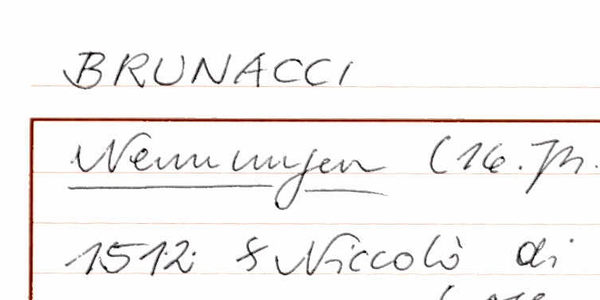 BRUNACCI
Nennungen (16. Jh.
1512: & Niccolò di